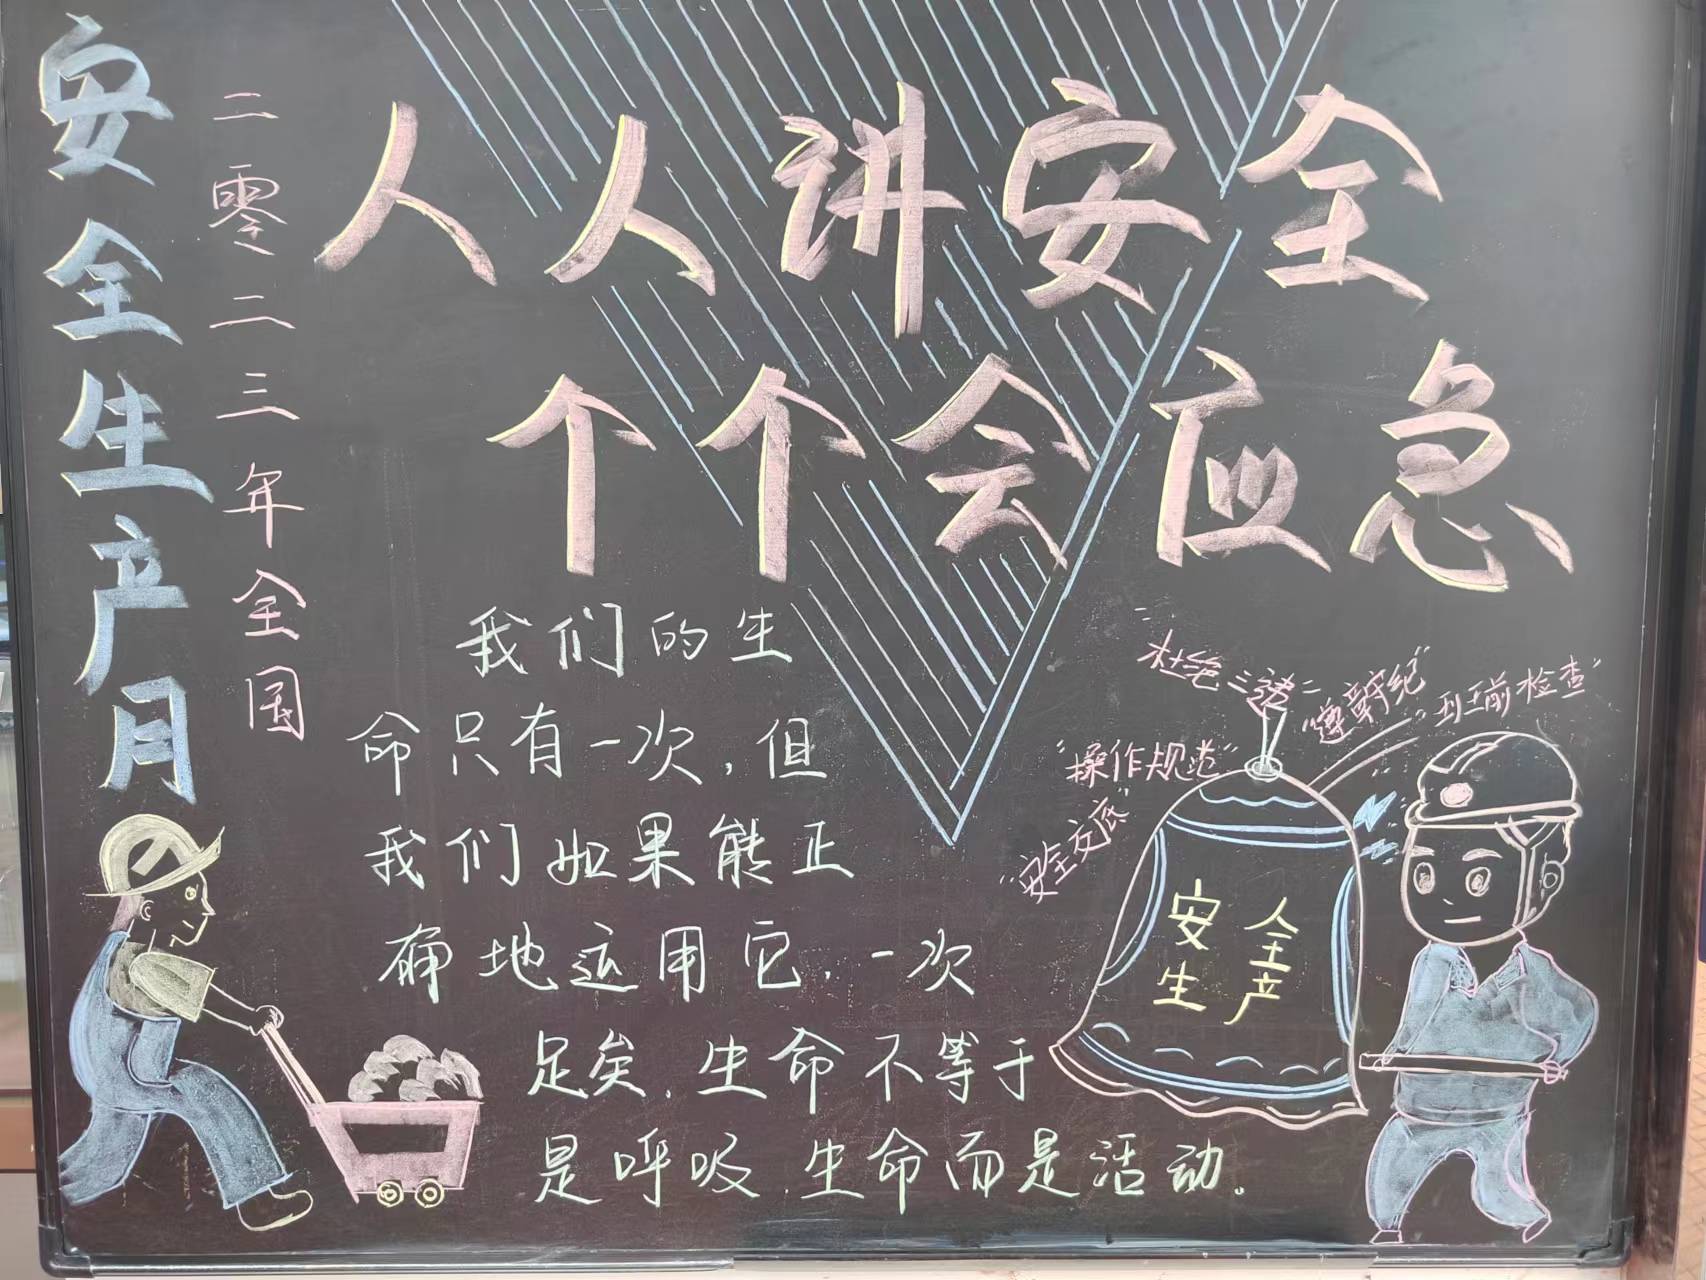 安全生产月
二零二三年全国
人人讲安全
个个会应急
我们的生
命只有一次，但
我们如果能正
确地运用它，一次
足矣，生命不等于
是呼吸，生命而是活动。
"杜绝三违"
"遵章守纪"
"班前检查"
"操作规范"
"安全交底"
安全
生产